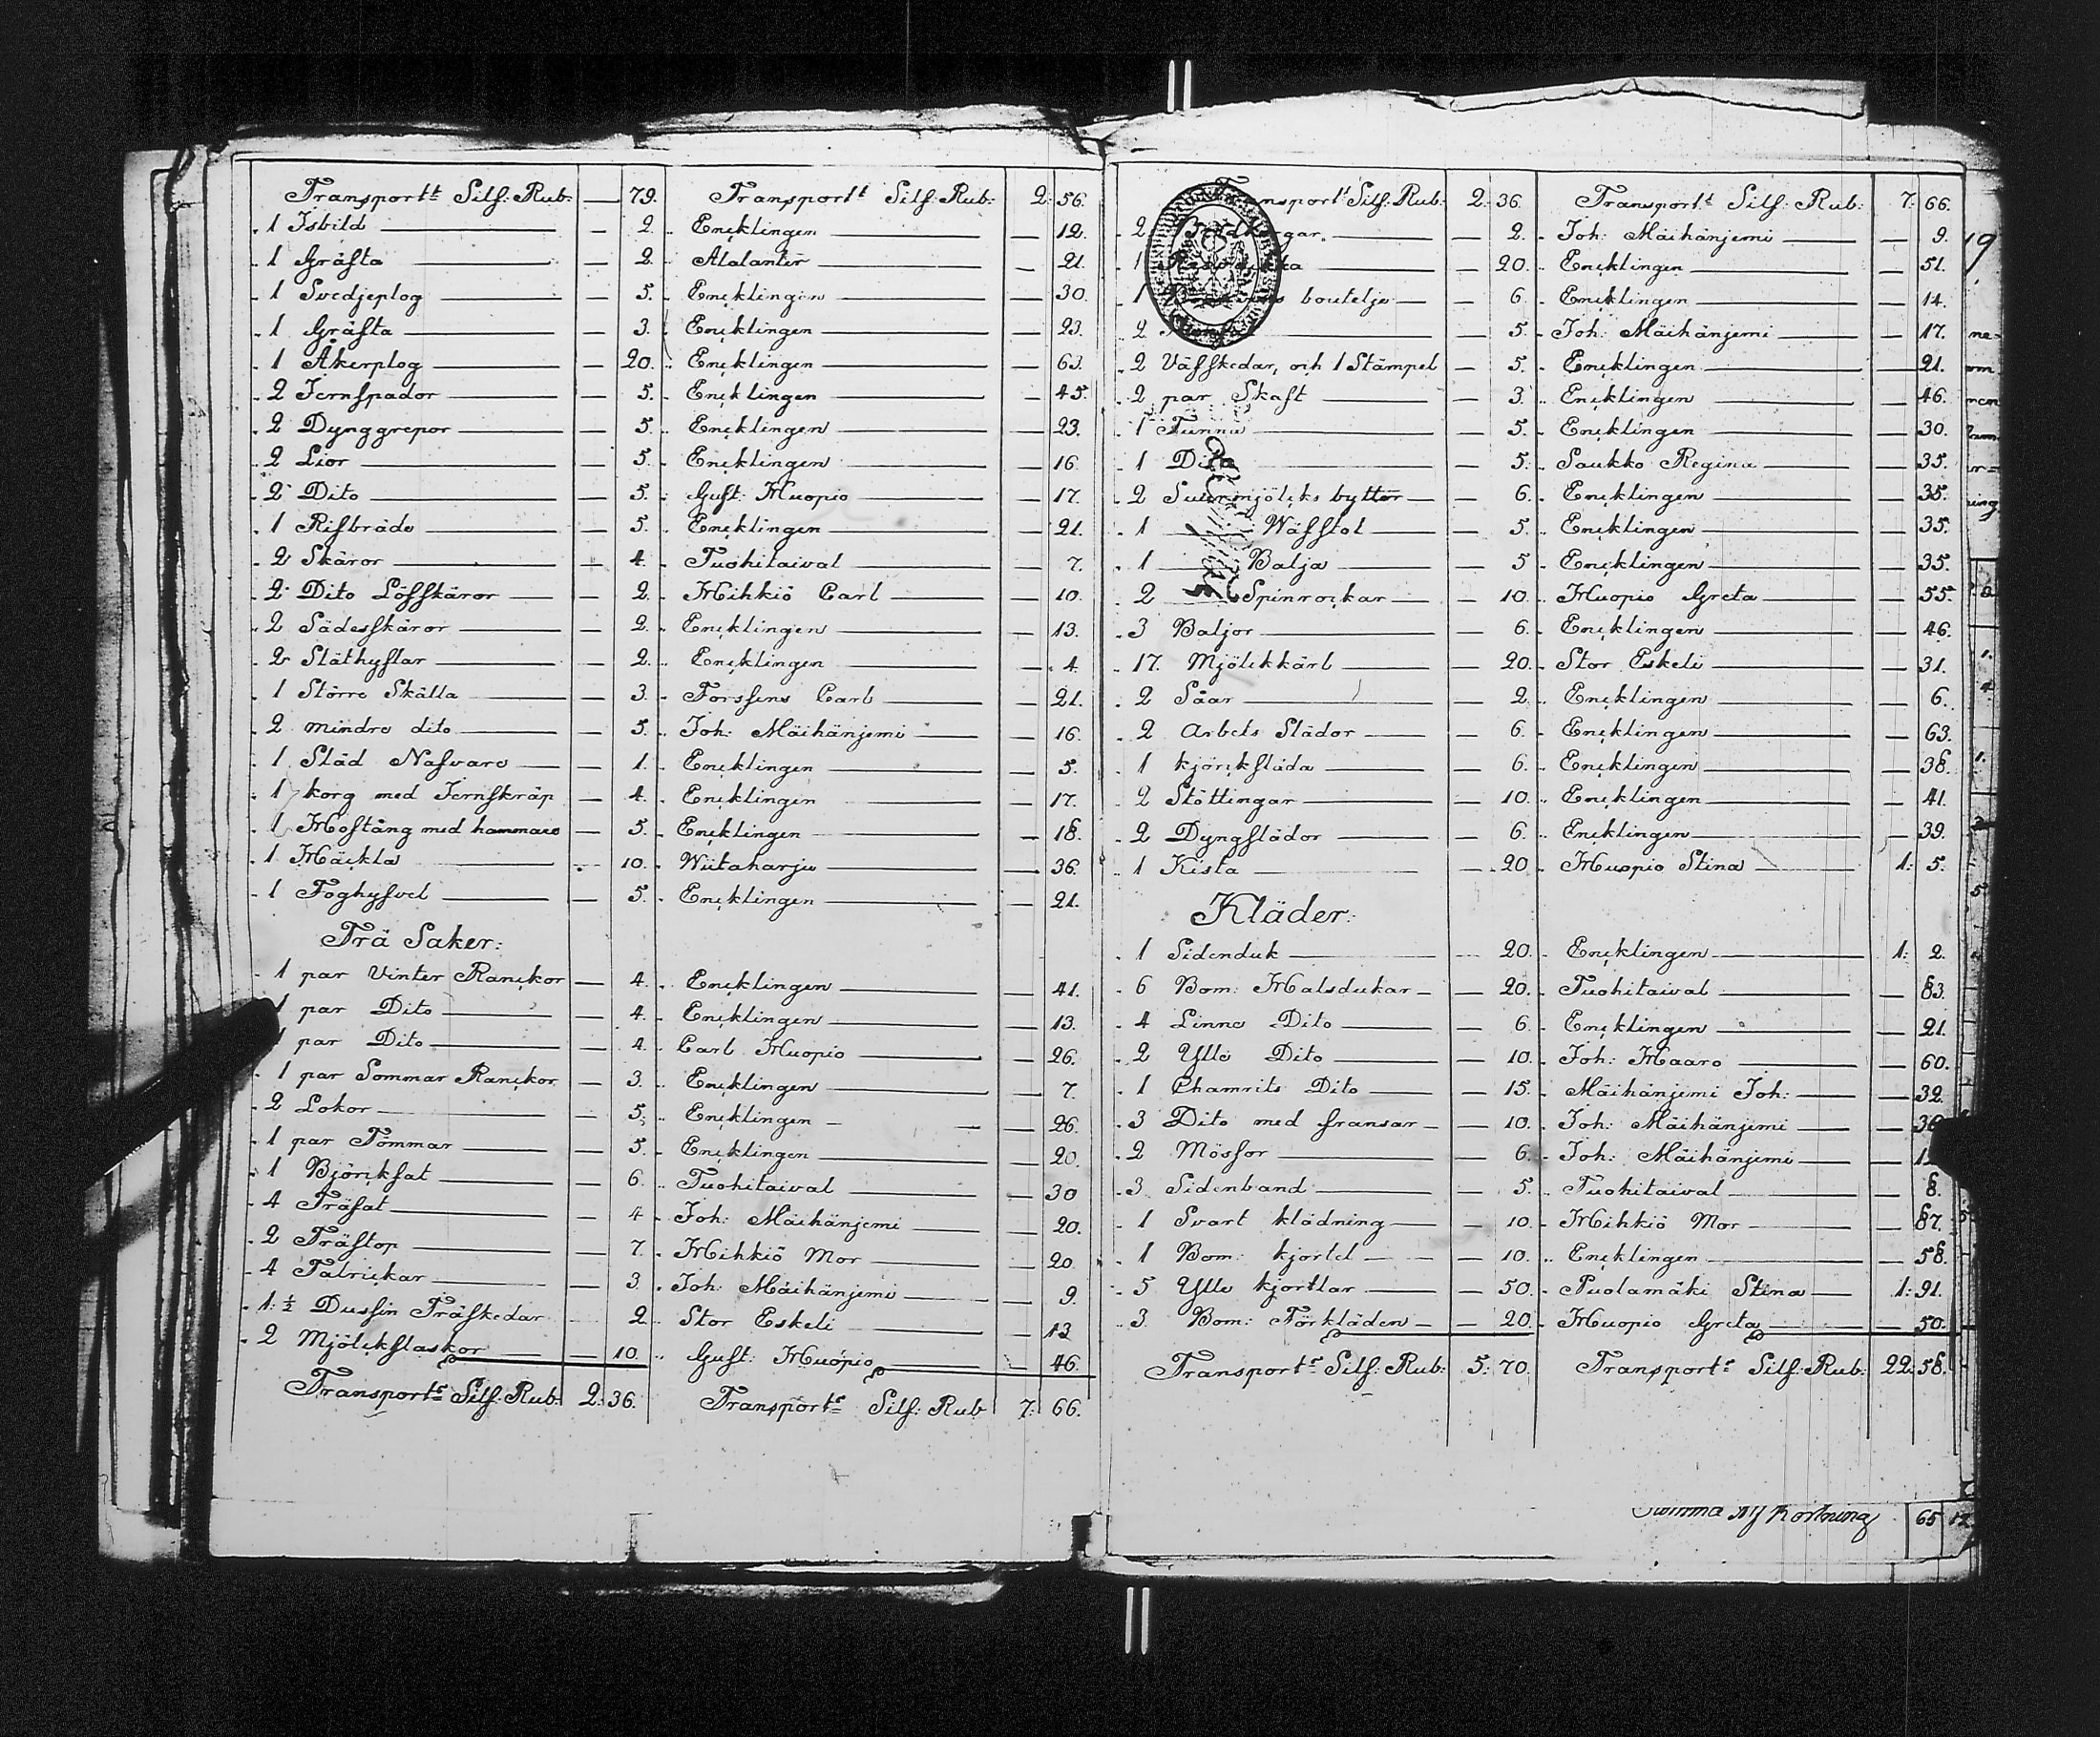 Transport:t Silf: Rub: — 79. Transport:t Silf: Rub: 2: 56.
1 Isbild — 2. Encklingen — 12.
1 Gräfta — 2. Alalantir — 21.
1 Svedjeplog — 5. Encklingen — 30.
1 Gräfta — 3. Encklingen — 23.
1 Åkerplog — 20. Encklingen — 63.
2 Jernspador — 5. Encklingen — 45.
2 Dynggrepor — 5. Encklingen — 23.
2 Lior — 5. Encklingen — 16.
2 Dito — 5. Gust: Huopio — 17.
1 Rifbräde — 5. Encklingen — 21.
2 Skäror — 4. Tuohitaival — 7.
2 Dito Löfskäror — 2. Hihkiö Carl — 10.
2 Sädesskäror — 2. Encklingen — 13.
2 Släthyflar — 2. Encklingen — 4.
1 Större Skälla — 3. Forssens Carl — 21.
2 mindre dito — 5. Joh: Mäihänjemi — 16.
1 Städ Nafvare — 1. Encklingen — 5.
1 korg med Jernskräp — 4. Encklingen — 17.
1 Hoftång med hammare — 5. Encklingen — 18.
1 Häckla — 10. Wiitaharju — 36.
1 Foghyfvel — 5. Encklingen — 21.
Trä Saker:
1 par Vinter Ranckor — 4. Encklingen — 41.
1 par Dito — 4. Encklingen — 13.
1 par Dito — 4. Carl Huopio — 26.
1 par Sommar Ranckor — 3. Encklingen — 7.
2 Lokor — 5. Encklingen — 26.
1 par Tömmar — 5. Encklingen — 20.
1 Björkfat — 6. Tuohitaival — 30
4 Träfat — 4. Joh: Mäihänjemi — 20.
2 Trästop — 7. Hihkiö Mor — 20.
4 Talrickar — 3. Joh: Mäihänjemi — 9.
1 ½ Dussin Träskedar 2. Stor Eskeli — 13
2 Mjölckflaskor — 10. Gust: Huopio — 46.
Transport:r Silf: Rub: 2: 36. Transport:r Silf: Rub 7: 66.
Silf: Rub: 2: 36. Transport:t Silf: Rub: 7: 66.
2 — 2. Joh: Mäihänjemi — 9.
1 — 20. Encklingen — 51.
1 boutelje — 6. Encklingen — 14.
2 — 5. Joh: Mäihänjemi — 17.
2 Väfskedar, och 1 Stämpel — 5. Encklingen — 21.
2 par Skaft — 3. Encklingen — 46.
1 Tunna — 5. Encklingen — 30.
1 Dito — 5. Saukko Regina — 35.
2 Suurmjölcks byttor — 6. Encklingen — 35.
1 Wäfstol — 5. Encklingen — 35.
1 Balja — 5 Encklingen — 35.
2 Spinrockar — 10. Huopio Greta — 55.
3 Baljor — 6. Encklingen — 46.
17. Mjölkkärl — 20. Stor Eskeli — 31.
2 Såar — 2 Encklingen — 6.
2 Arbets Slädor — 6. Encklingen — 63.
1 kjörcksläda — 6. Encklingen — 38.
2 Stöttingar — 10. Encklingen — 41.
2 Dyngslädor — 6. Encklingen — 39.
1 Kista — 20. Huopio Stina — 1: 5.
Kläder:
1 Sidenduk — 20. Encklingen — 1: 2.
6 Bom: Halsdukar — 20. Tuohitaival — 83.
4 Linne Dito — 6. Encklingen — 21.
2 Ylle Dito — 10. Joh: Haaro — 60.
1 Chamrits Dito — 15. Mäihänjemi Joh: — 32.
3 Dito med fransar — 10. Joh: Mäihänjemi —
2 Mössor — 6. Joh: Mäihänjemi —
3 Sidenband — 5. Tuohitaival — 8.
1 Svart klädning — 10. Hihkiö Mor — 87.
1 Bom: kjortel — 10. Encklingen — 58.
5 Ylle kjortlar — 50. Puolamäki Stina — 1: 91.
3 Bom: Förkläden — 20. Huopio Greta — 50.
Transport:r Silf: Rub: 5: 70. Transport:r Silf: Rub: 22: 58.
Summa Afkortning 65 12